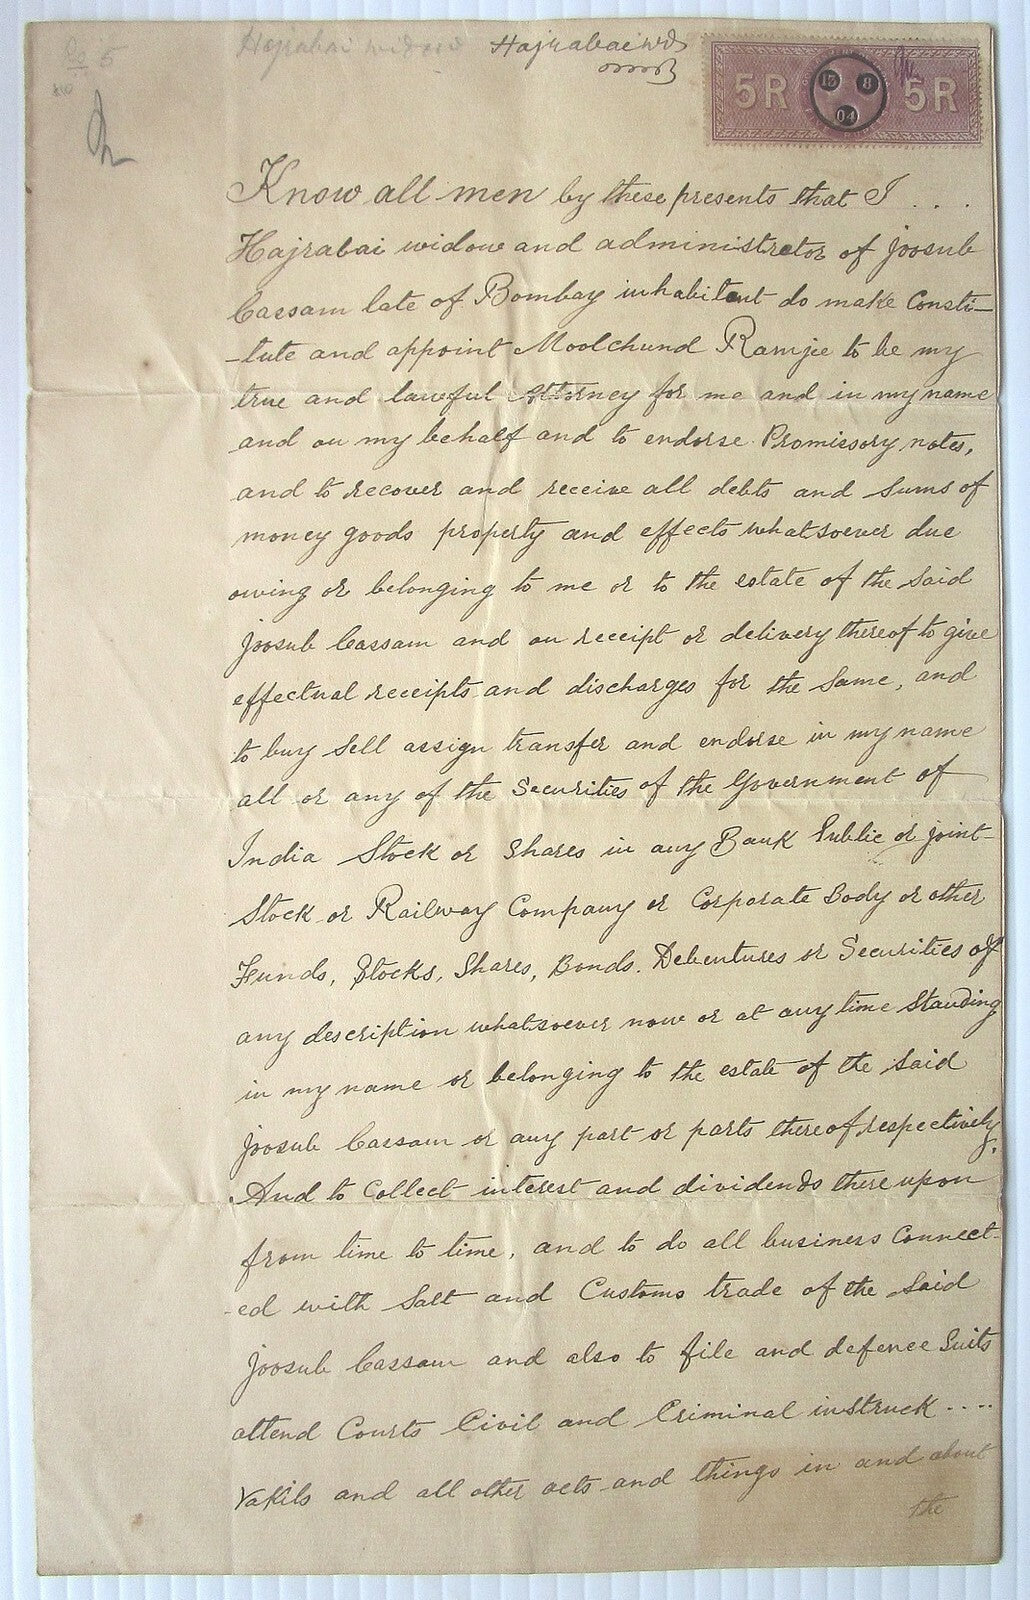 Hajrabai widow Hajrabai wd
5R 5R
8
04
Know all men by these presents that I . . .
Hajrabai widow and administrator of Joosub
Cassam late of Bombay inhabitant do make Consti-
-tute and appoint Moolchund Ramjee to be my
true and lawful Attorney for me and in my name
and on my behalf and to endorse Promissory notes,
and to recover and receive all debts and sums of
money goods property and effects whatsoever due
owing or belonging to me or to the estate of the Said
Joosub Cassam and on receipt or delivery thereof to give
effectual receipts and discharges for the Same, and
to buy Sell assign transfer and endorse in my name
all or any of the Securities of the Government of
India Stock or Shares in any Bank Public or joint-
Stock or Railway Company or Corporate Body or other
Funds, Stocks, Shares, Bonds. Debentures or Securities of
any description whatsoever now or at any time Standing
in my name or belonging to the estate of the Said
Joosub Cassam or any part or parts thereof respectively.
And to Collect interest and dividends there upon
from time to time, and to do all business Connect-
-ed with Salt and Customs trade of the Said
Joosub Cassam and also to file and defence Suits
attend Courts Civil and Criminal instruck ....
Vakils and all other acts and things in and about
the